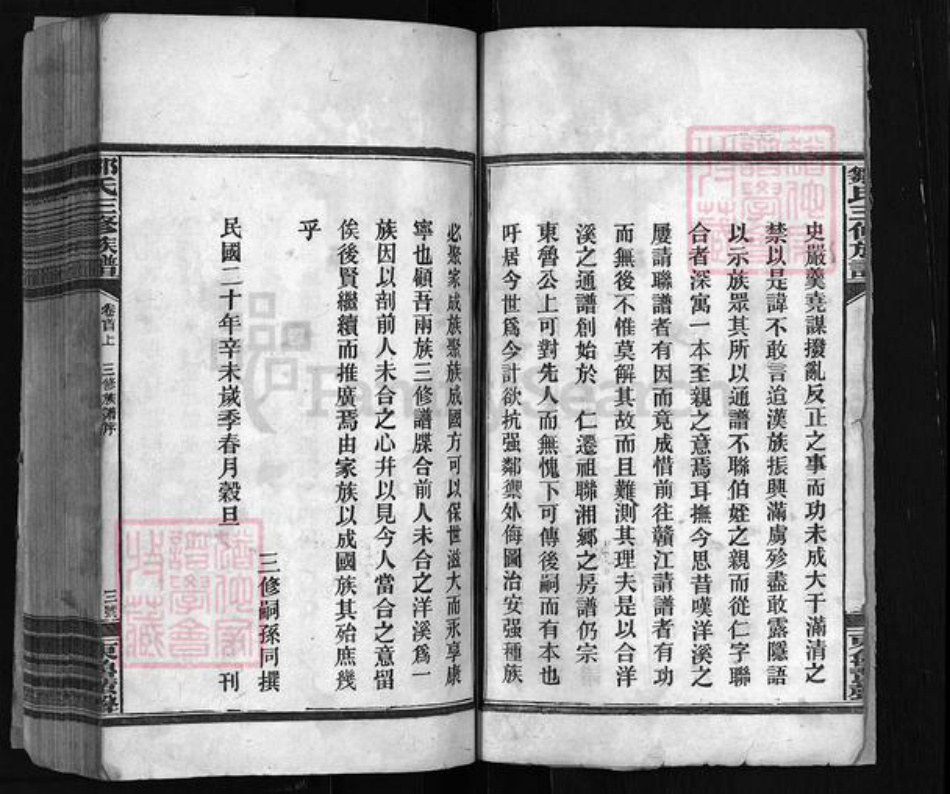 史嚴羹堯謀撥亂反正之事而功未成大干滿清之
禁以是諱不敢言追漢族振興滿虜殄盡敢露隱語
以示族眾其所以通譜不聯伯姪之親而從仁字聯
合者深寓一本至親之意焉耳撫今思昔嘆洋溪之
屢請聯譜者有因而竟成惜前往贛江請譜者有功
而無後不惟莫解其故而且難測其理夫是以合洋
溪之通譜創始於 仁遷祖聯湘鄉之房譜仍宗
東魯公上可對先人而無愧下可傳後嗣而有本也
吁居今世爲今計欲抗强鄰禦外侮圖治安强種族
必聚家成族聚族成國方可以保世滋大而永享康
寧也顧吾兩族三修譜牒合前人未合之洋溪爲一
族因以剖前人未合之心幷以見今人當合之意留
俟後賢繼續而推廣焉由家族以成國族其殆庶幾
乎
民國二十年辛未歲季春月穀旦
三修嗣孫同撰
刊
鄒氏三修族譜
卷首上 三修族譜序
FamilySearch